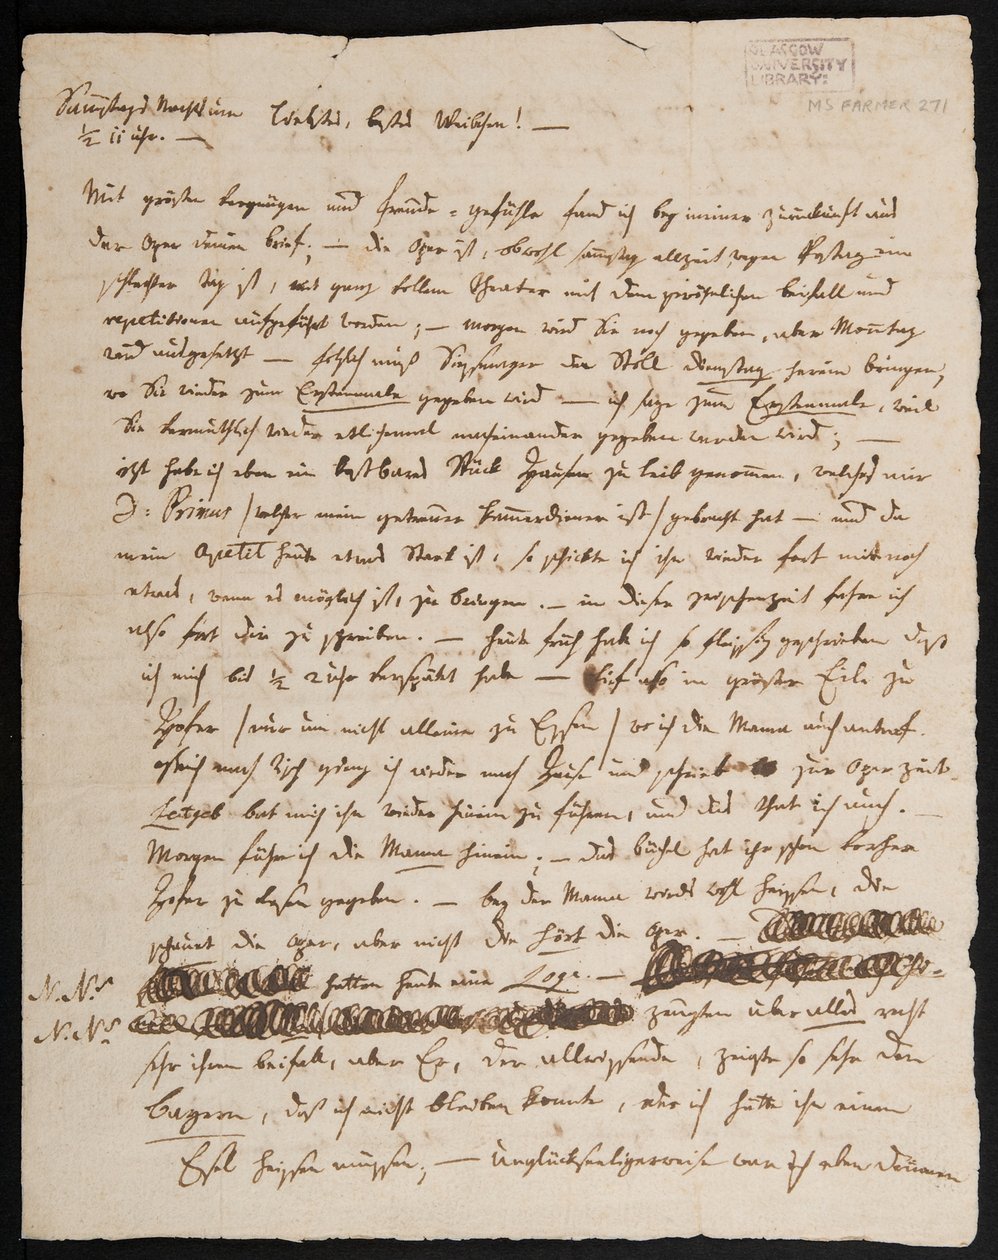 GLASGOW
UNIVERSITY
LIBRARY:
MS FARMER 271
Samstags Nachts um
½ 11 uhr. —
liebstes, bestes Weibchen! —
Mit grösten Vergnügen und freude-gefühle fand ich bey meiner zurückkunft aus
der Oper deinen brief; — die Oper ist, obwohl samstag allzeit, wegen Postag ein
schlechter Tag ist, mit ganz vollem theater mit dem gewöhnlichen beifall und
repetitionen aufgeführt worden; — morgen wird Sie noch gegeben, aber Montag
wird ausgesetzt — folglich muß Süssmayer den Stoll dienstag herein bringen,
wo Sie wieder zum Erstenmale gegeben wird — ich sage zum Erstenmale, weil
Sie vermuthlich wieder etlichemal nacheinander gegeben werden wird; —
izt habe ich eben ein kostbares Stück Hausen zu leib genommen, welches mir
D: Primus /welcher mein getreuer kammerdiener ist/ gebracht hat — und da
mein apetit heute etwas Stark ist, so schickte ich ihn wieder fort mir noch
etwas, wenn es möglich ist, zu bringen. — in dieser zwischenzeit fahre ich
also fort dir zu schreiben. — heute früh habe ich so fleissig geschrieben daß
ich mich bis ½ 2 uhr verspätet habe — lief also in gröster Eile zu
Hofer /nur um nicht alleine zu Essen/ wo ich die Mama auch antraf.
gleich nach Tisch gieng ich wieder nach Hause und schrieb bis zur Oper zeit.
Leitgeb bat mich ihn wieder hinein zu führen, und das that ich auch. —
Morgen führe ich die Mama hinein; — das büchel hat ihr schon vorher
Hofer zu lesen gegeben. — bey der Mama wirds wohl heissen, die
schauet die Oper, aber nicht die hört die Oper. —
N.N.s hatten heute eine Loge. —
N.N.s zeugten über alles recht
sehr ihren beifall, aber Er, der allwissende, zeigte so sehr den
bayern, daß ich nicht bleiben konnte, oder ich hätte ihn einen
Esel heissen müssen; — Unglückseeligerweise war ich eben drinnen